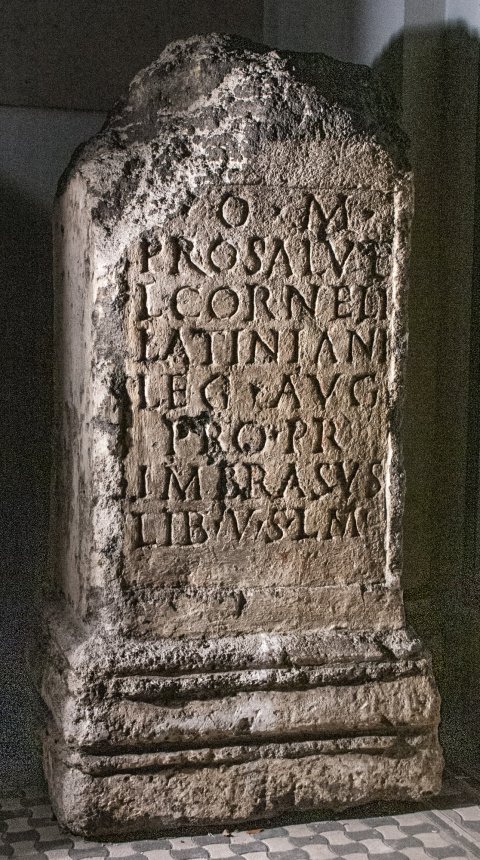 · O · M ·
PRO SALVT
L CORNELI
LATINIANI
LEG · AVG
PRO · PR
IMBRASVS
LIB · V · S · L M